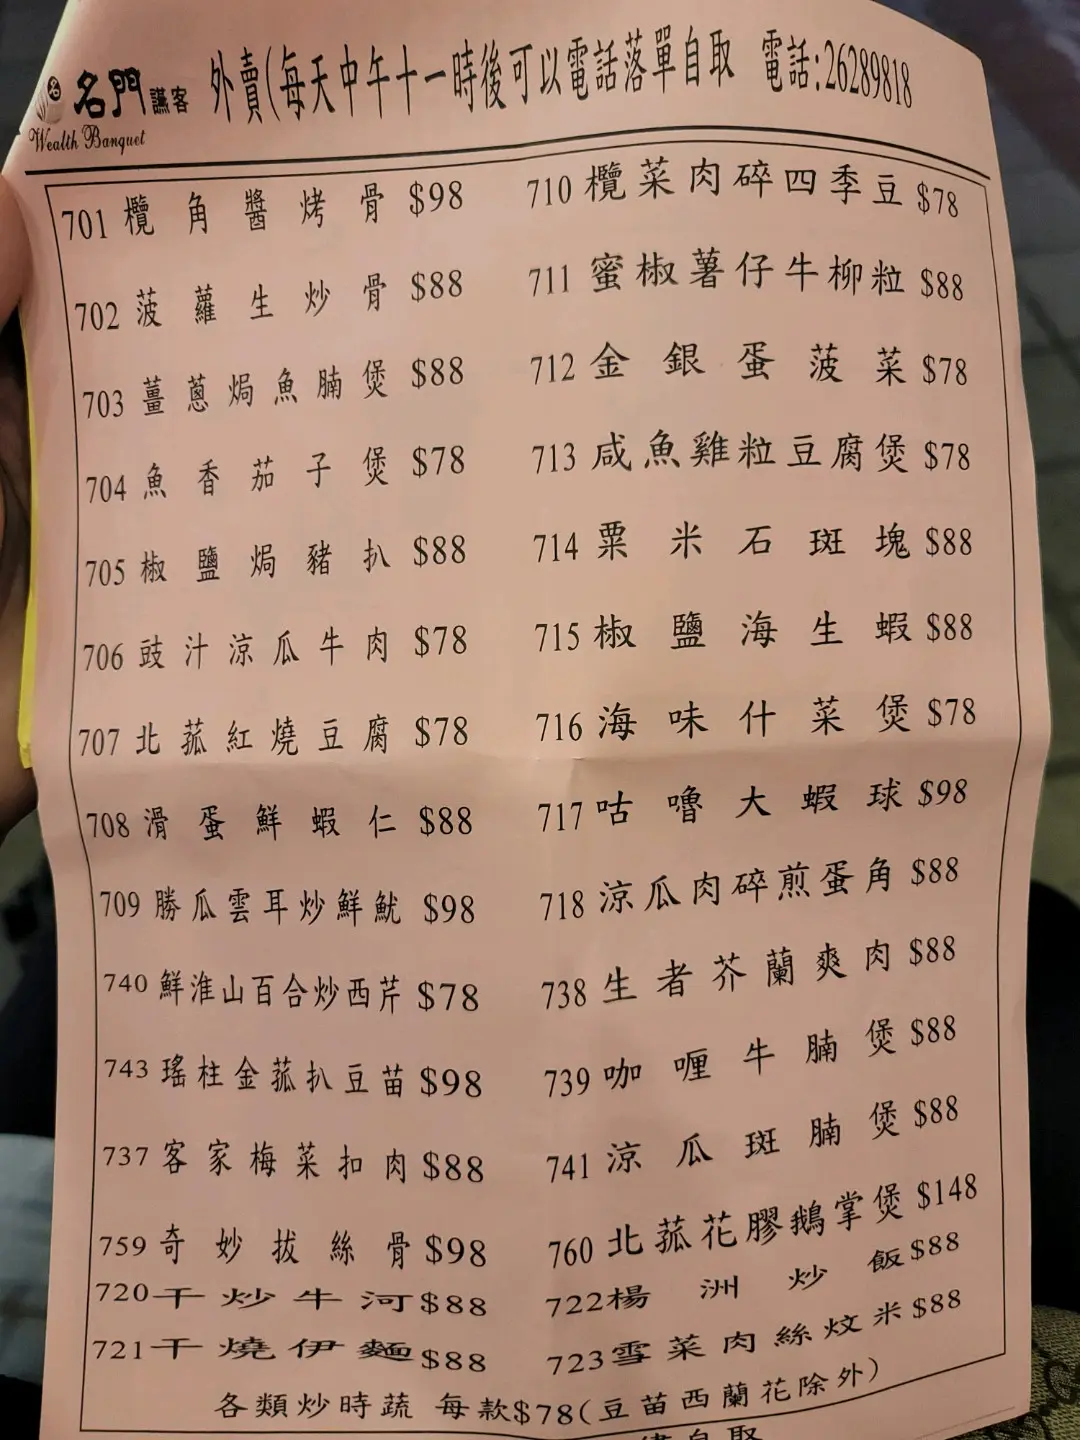 名門讌客 外賣(每天中午十一時後可以電話落單自取 電話:26289818
Wealth Banquet
701 欖角醬烤骨 $98
702 菠蘿生炒骨 $88
703 薑蔥焗魚腩煲 $88
704 魚香茄子煲 $78
705 椒鹽焗豬扒 $88
706 豉汁涼瓜牛肉 $78
707 北菰紅燒豆腐 $78
708 滑蛋鮮蝦仁 $88
709 勝瓜雲耳炒鮮魷 $98
740 鮮淮山百合炒西芹 $78
743 瑤柱金菰扒豆苗 $98
737 客家梅菜扣肉 $88
759 奇妙拔絲骨 $98
720 干炒牛河 $88
721 干燒伊麵 $88
710 欖菜肉碎四季豆 $78
711 蜜椒薯仔牛柳粒 $88
712 金銀蛋菠菜 $78
713 咸魚雞粒豆腐煲 $78
714 粟米石斑塊 $88
715 椒鹽海生蝦 $88
716 海味什菜煲 $78
717 咕嚕大蝦球 $98
718 涼瓜肉碎煎蛋角 $88
738 生者芥蘭爽肉 $88
739 咖喱牛腩煲 $88
741 涼瓜斑腩煲 $88
760 北菰花膠鵝掌煲 $148
722 楊洲炒飯 $88
723 雪菜肉絲炆米 $88
各類炒時蔬 每款$78(豆苗西蘭花除外)
自取